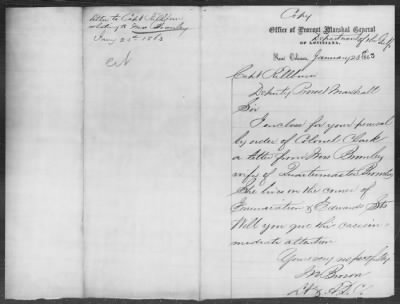 letter to Capt Killborn
relating to Mrs Bromley
Jany 23rd 1863
Copy
Office of Provost Marshal General
Department of the Gulf
OF LOUISIANA,
New Orleans, January 23rd 1863
Capt Killborn
Deputy Provost Marshall
Sir
I enclose for your perusal
by order of Colonel Clark
a letter from Mrs Bromley
wife of Quartermaster Bromley
She lives on the corner of
&
Will you give this case im-
mediate attention
Yours very respectfully
Lt & A.D.C.